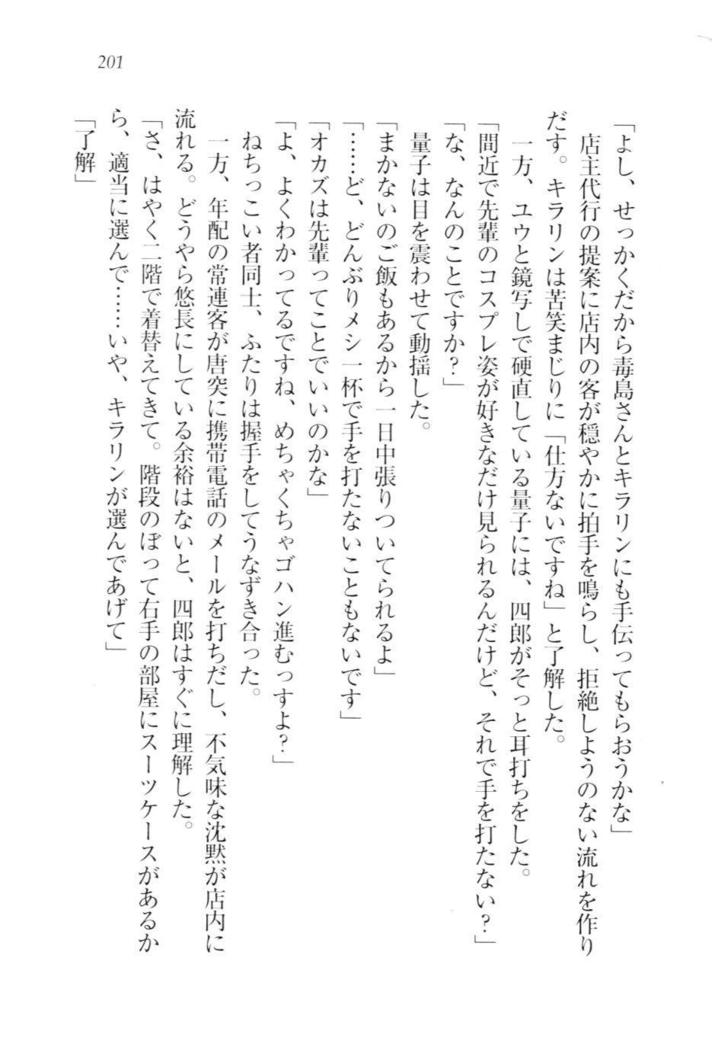 201
「よし、せっかくだから毒島さんとキラリンにも手伝ってもらおうかな」
店主代行の提案に店内の客が穏やかに拍手を鳴らし、拒絶しようのない流れを作り
だす。キラリンは苦笑まじりに「仕方ないですね」と了解した。
一方、ユウと鏡写しで硬直している量子には、四郎がそっと耳打ちをした。
「間近で先輩のコスプレ姿が好きなだけ見られるんだけど、それで手を打たない？」
「な、なんのことですか？」
量子は目を震わせて動揺した。
「まかないのご飯もあるから一日中張りついてられるよ」
「……ど、どんぶりメシ一杯で手を打たないこともないです」
「オカズは先輩ってことでいいのかな」
「よ、よくわかってるですね、めちゃくちゃゴハン進むっすよ？」
ねちっこい者同士、ふたりは握手をしてうなずき合った。
一方、年配の常連客が唐突に携帯電話のメールを打ちだし、不気味な沈黙が店内に
流れる。どうやら悠長にしている余裕はないと、四郎はすぐに理解した。
「さ、はやく二階で着替えてきて。階段のぼって右手の部屋にスーツケースがあるか
ら、適当に選んで……いや、キラリンが選んであげて」
「了解」